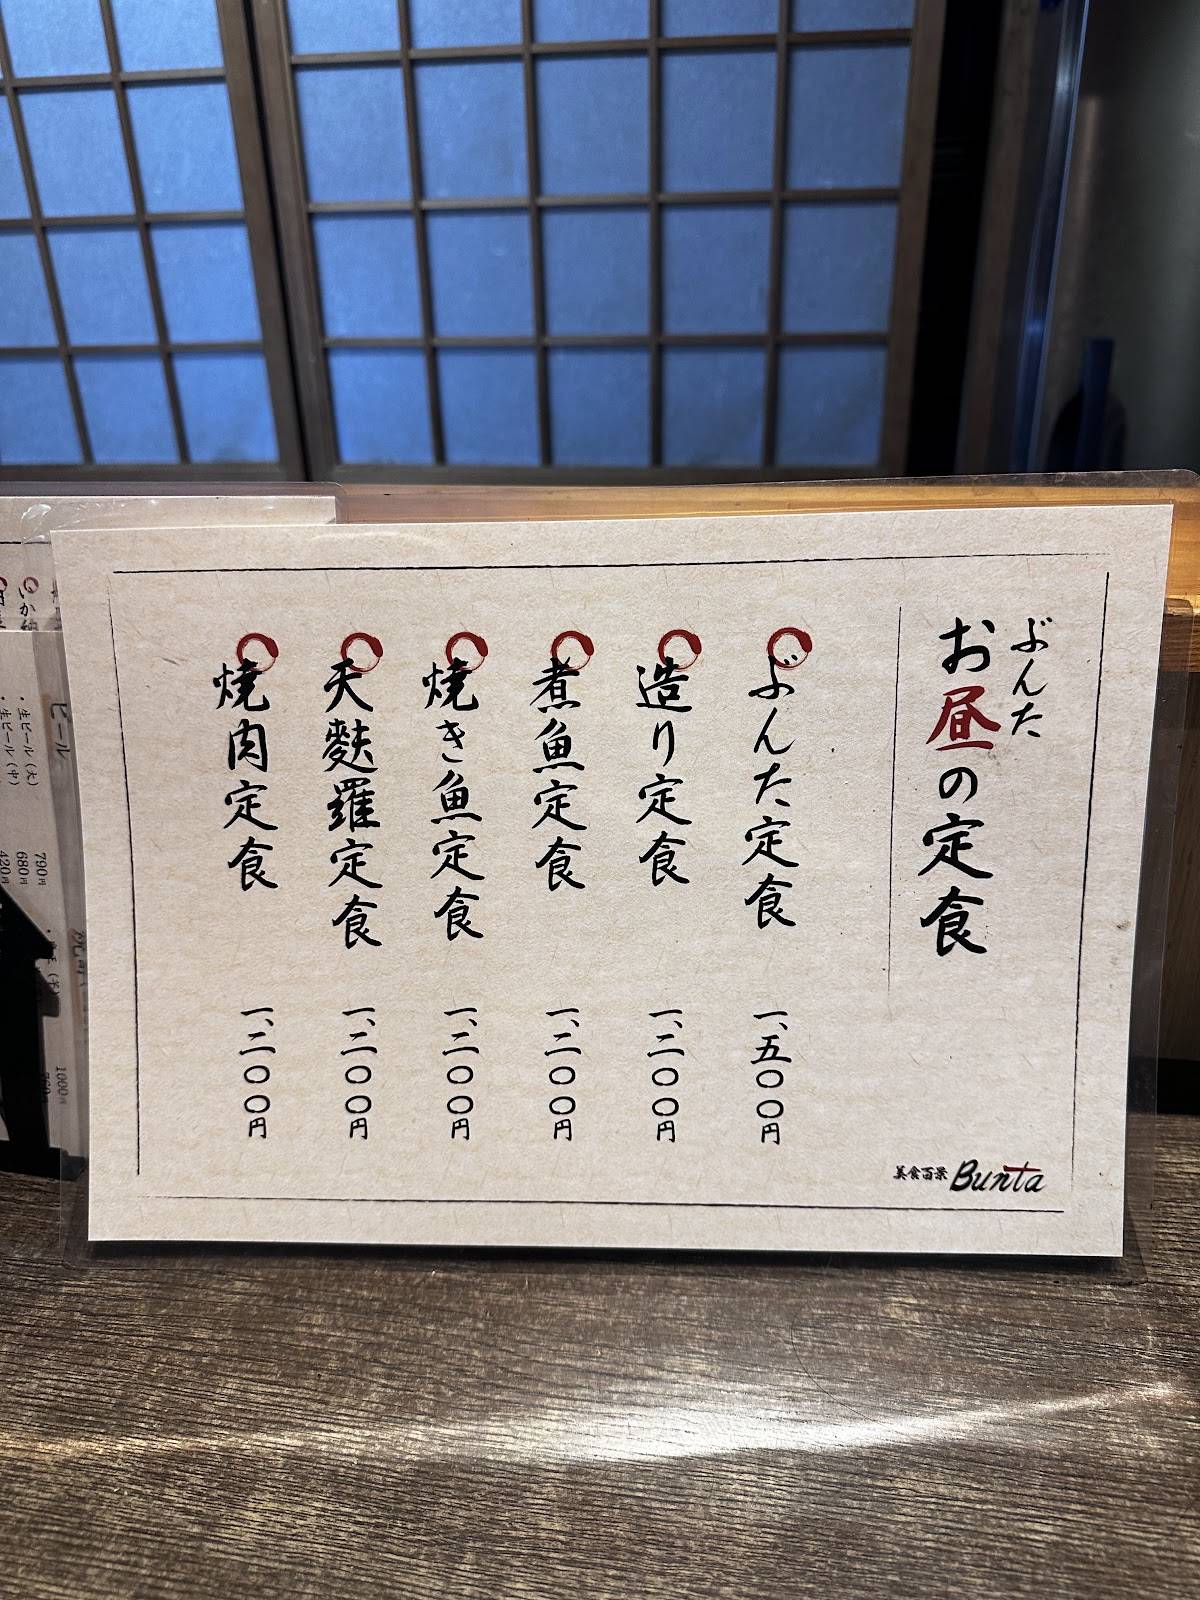 ぶんた
お昼の定食
ぶんた定食 一、五〇〇円
造り定食 一、二〇〇円
煮魚定食 一、二〇〇円
焼き魚定食 一、二〇〇円
天麩羅定食 一、二〇〇円
焼肉定食 一、二〇〇円
美食百景 Bunta
いか
ビール
・生ビール(大) 790円
・生ビール(中) 680円
420円
1000円